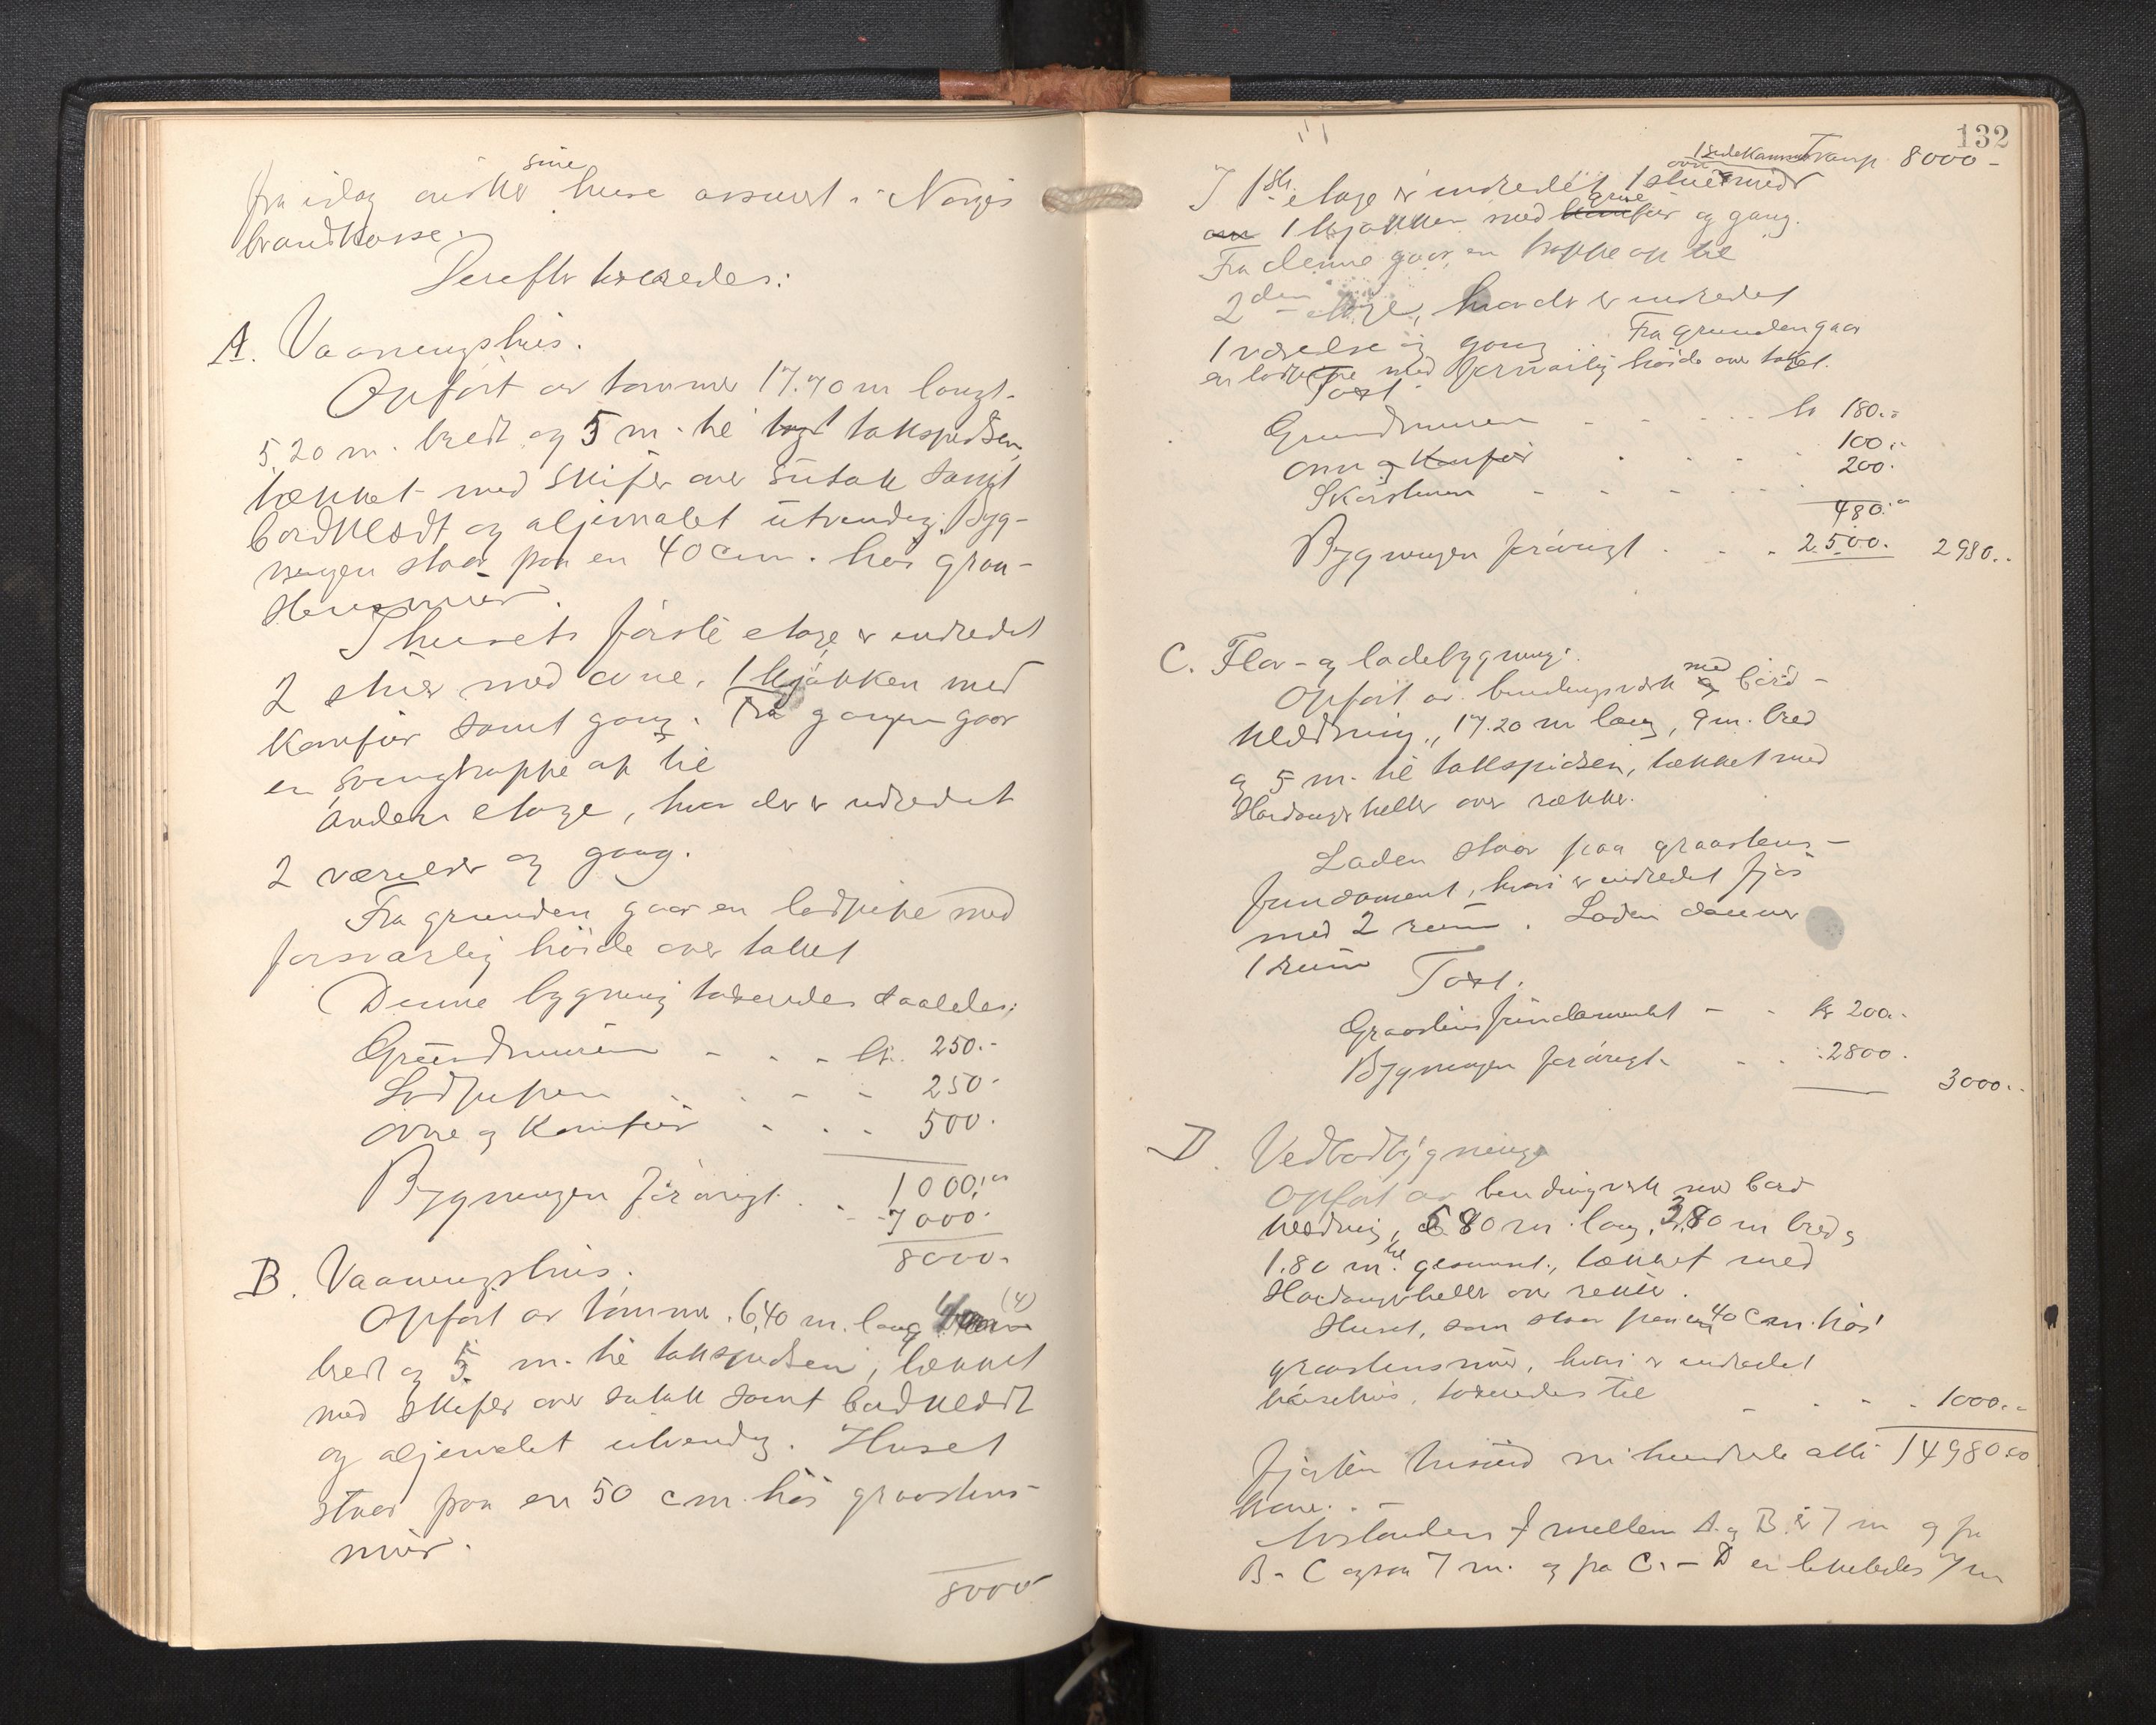 fra idag ønsker sine huse assurert i Norges
brandkasse.
Derefter takseredes:
A. Vaaningshus.
Opført av tømmer 17.70 m langt
5.20 m. bredt og 5 m. til takspidsen,
tækket med skifer over sutak samt
bordklædt og oljemalet utvendig. Byg-
ningen staar paa en 40 cm. høi graa-
stensmur.
I husets første etage er indredet
2 stuer med ovne, 1 kjøkken med
komfur samt gang. Fra gangen gaar
en svingtrappe op til
anden etage, hvor der er indredet
2 værelser og gang.
Fra grunden gaar en lodpipe med
forsvarlig høide over taket
Denne bygning takseredes saaledes:
Grundmuren - - - kr. 250.-
Lodpipen - - - 250.-
Ovne og Komfur - - - 500.
1000.00
Bygningen forøvrigt - - 7000.
8000.
B. Vaaningshus.
Opført av tømmer. 6,40 m. lang (4)
bredt og 5 m. til takspidsen, tækket
med skifer over sutak samt bordklædt
og oljemalet utvendig. Huset
staar paa en 50 cm. høi graastens-
mur.
8000
132
Transp. 8000-
I 1ste etage er indredet 1 stue med ovn 1 sidekammer
1 kjøkken med grue og gang.
Fra denne gaar en trappe op til
2den etage, hvor der er indredet
1 værelse og gang. Fra grunden gaar
en lodpipe med forsvarlig høide over taket.
Taxt
Grundmuren - - - kr 180.-
Ovn og Komfur - - - 100.-
Skorstenen - - - 200.
480.-
Bygningen forøvrigt - - - 2500. 2980.-
C. Flor- og ladebygning.
Opført av bindingsverk med bord-
klædning, 17.20 m lang, 9 m. bred
og 5 m. til takspidsen, tækket med
Hardangerheller over rækker.
Laden staar paa graastens-
fundament, hvori er indredet fjøs
med 2 rum. Laden danner
1 rum
Taxt.
Graastensfundamentet - - kr 200.-
Bygningen forøvrigt - - 2800.
3000.-
D. Vedbodbygning
Opført av bindingsverk med bord
klædning, 5.80 m. lang, 3.80 m bred og
1.80 m. til gesimset, tækket med
Hardangerheller over rækker.
Huset, som staar paa en 40 cm. høi
graastensmur, hvori er indredet
hønsehus, takseredes til - - - 1000.-
fjorten tusind ni hundrede otti 14980.00
krone. -
Avstanden mellem A og B er 7 m og fra
B - C ogsaa 7 m. og fra C. - D er likeledes 7 m